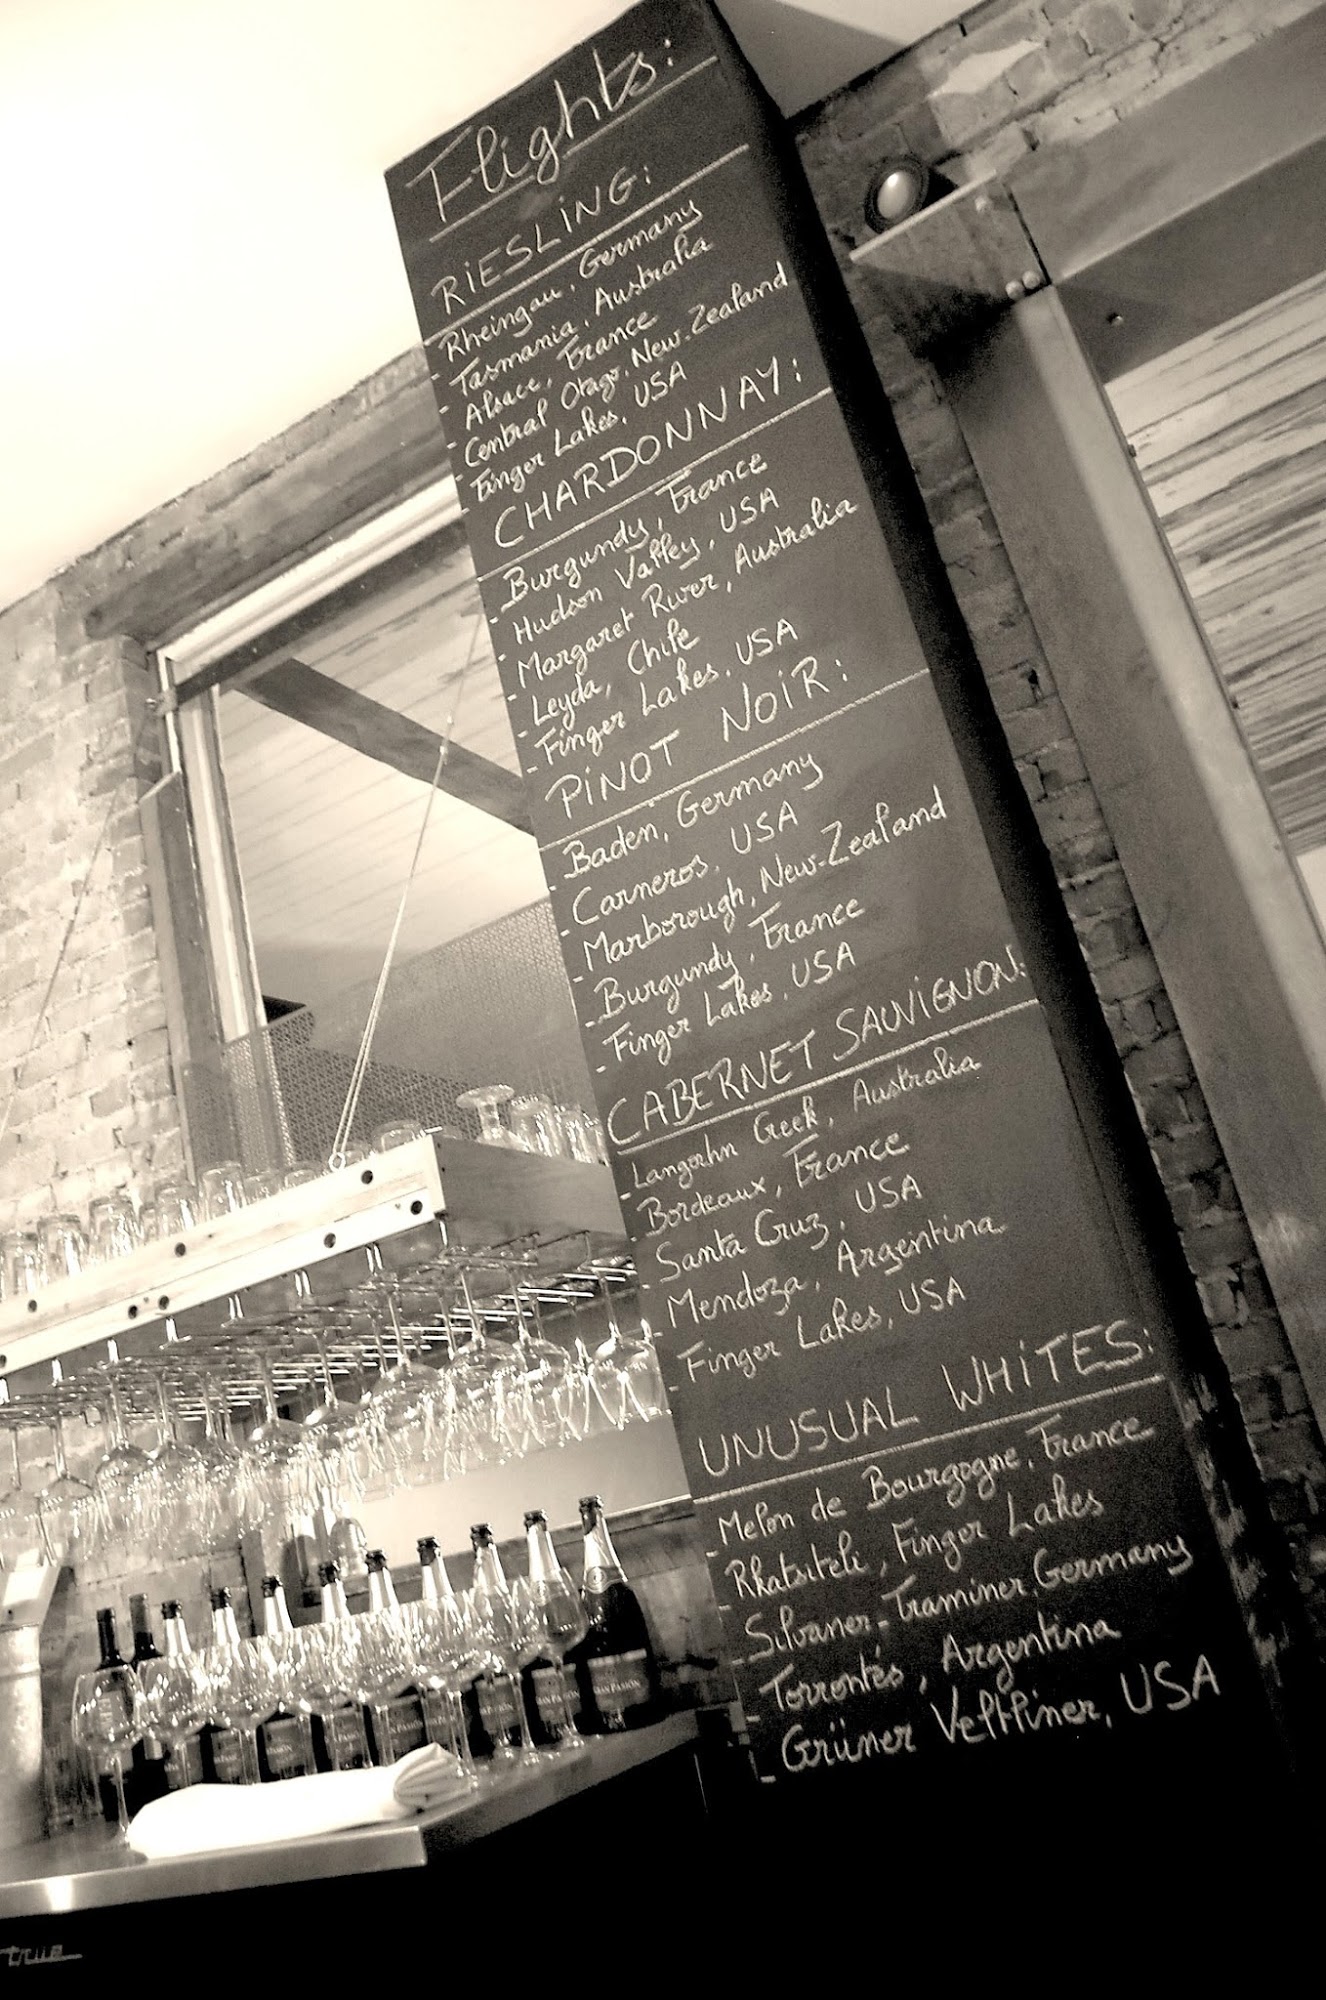 Flights:
RIESLING:
- Rheingau, Germany
- Tasmania, Australia
- Alsace, France
- Central Otago, New-Zealand
- Finger Lakes, USA
CHARDONNAY:
- Burgundy, France
- Hudson Valley, USA
- Margaret River, Australia
- Leyda, Chile
- Finger Lakes, USA
PINOT NOIR:
- Baden, Germany
- Carneros, USA
- Marborough, New-Zealand
- Burgundy, France
- Finger Lakes, USA
CABERNET SAUVIGNON:
- Langorhn Creek, Australia
- Bordeaux, France
- Santa Cruz, USA
- Mendoza, Argentina
- Finger Lakes, USA
UNUSUAL WHITES:
- Melon de Bourgogne, France
- Rkatsiteli, Finger Lakes
- Silvaner-Traminer, Germany
- Torrontés, Argentina
- Grüner Veltliner, USA
true